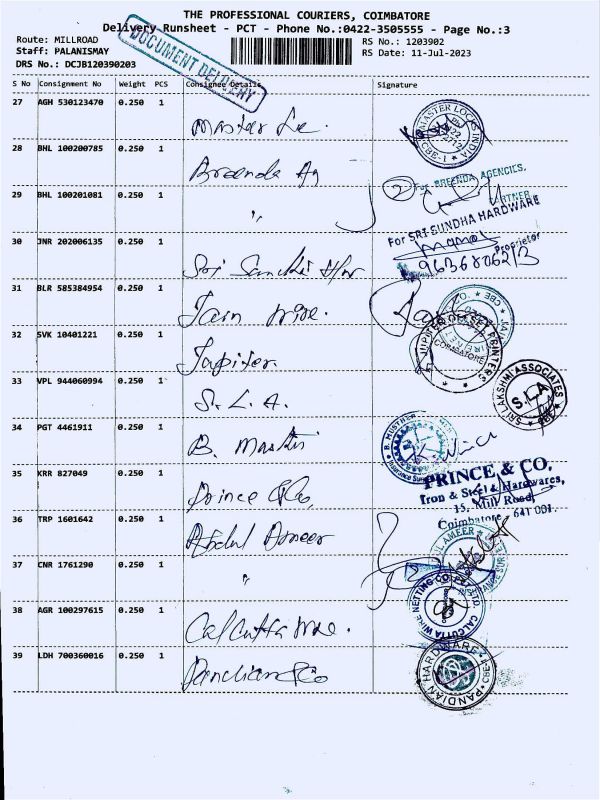 THE PROFESSIONAL COURIERS, COIMBATORE
Delivery Runsheet - PCT - Phone No.:0422-3505555 - Page No.:3
Route: MILLROAD
RS No.: 1203902
Staff: PALANISMAY
RS Date: 11-Jul-2023
DRS No.: DCJB120390203
DOCUMENT DELIVERY
S No Consignment No Weight PCS Consignee Details Signature
27 AGH 530123470 0.250 1
MASTER LOCKS INDIA
CBE-1
28 BHL 100200785 0.250 1
Breenda Ag
For BREENDA AGENCIES,
PARTNER
29 BHL 100201081 0.250 1
"
For SRI SUNDHA HARDWARE
Proprietor
30 JNR 202006135 0.250 1
31 BLR 585384954 0.250 1
Jain wire.
32 SVK 10401221 0.250 1
Jupiter.
JUPITER OFFSET PRINTERS
COIMBATORE
33 VPL 944060994 0.250 1
S. L. A.
SRI LAKSHMI ASSOCIATES
S.L.A
34 PGT 4461911 0.250 1
B.
35 KRR 827049 0.250 1
Prince & Co,
PRINCE & CO.
Iron & Steel & Hardwares,
15, Mill Road,
Coimbatore - 641 001.
36 TRP 1601642 0.250 1
Abdul Ameer
37 CNR 1761290 0.250 1
"
38 AGR 100297615 0.250 1
Calcutta wire.
CALCUTTA WIRE NETTING CO.
39 LDH 700360016 0.250 1
Pandian & Co
PANDIAN HARDWARE
CBE-1